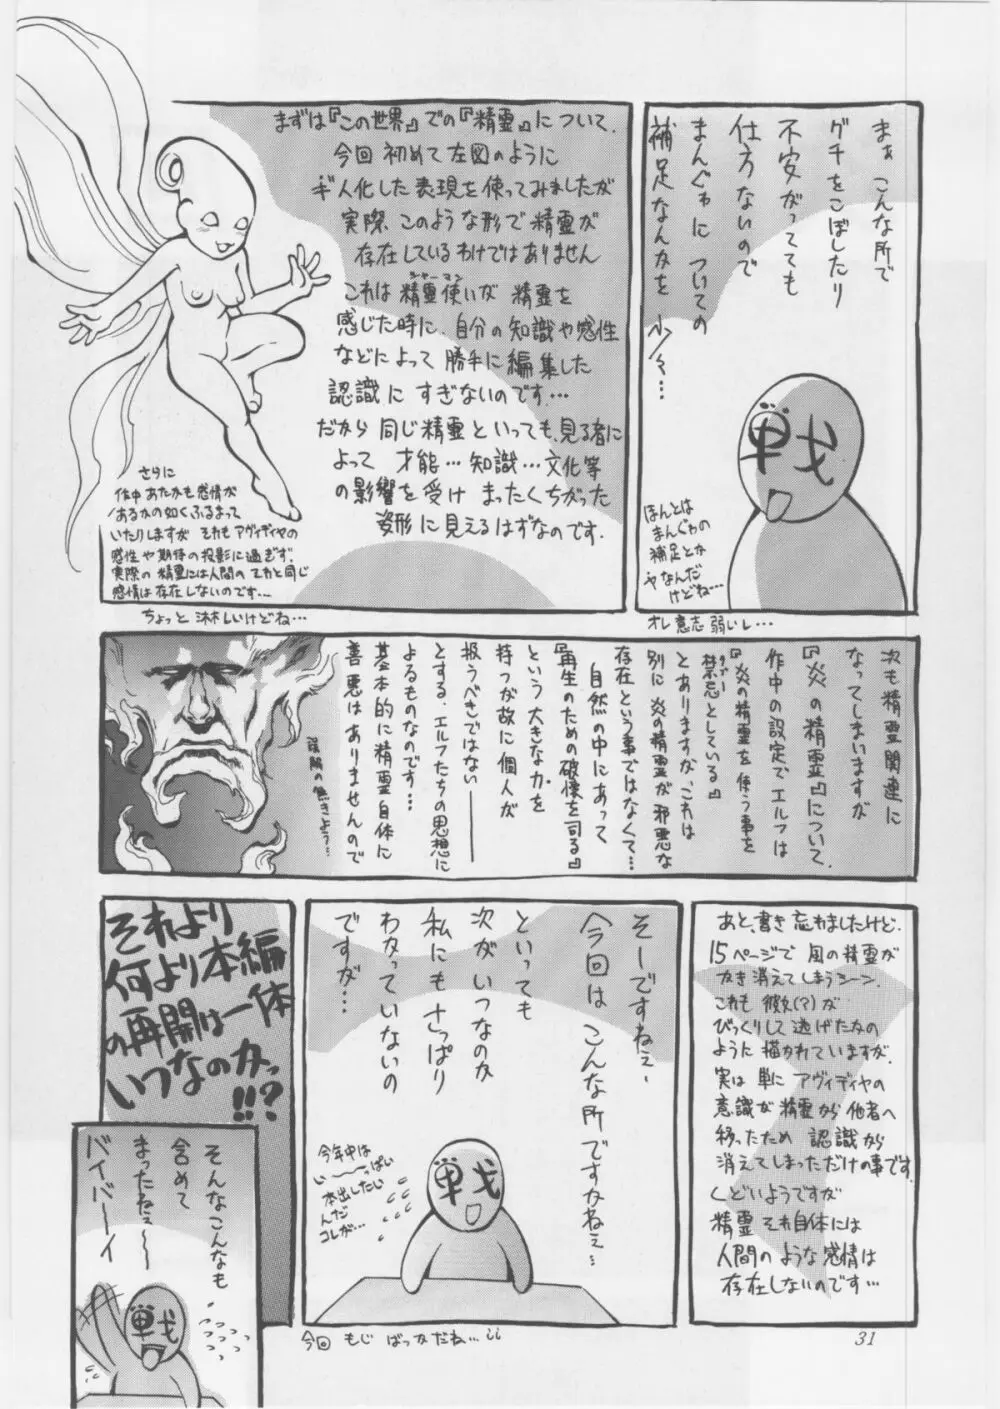 まぁ こんな所で
グチをこぼしたり
不安がってても
仕方ないので
まんがゎに ついての
補足なんかを
戦
ほんとは
まんがゎの
補足とか
やなんだ
けどね…
オレ意志弱いし…
まずは『この世界』での『精霊』について。
今回 初めて左図のように
ギ人化した表現を使ってみましたが
実際、このような形で精霊が
存在しているわけではありません
これは 精霊使いが 精霊を
シャーマン
感じた時に、自分の知識や感性
などによって 勝手に編集した
認識に すぎないのです…
だから 同じ精霊といっても、見る者に
よって 才能…知識…文化等
の影響を受け まったくちがった
姿形に見えるはずなのです.
さらに
作中 あたかも感情が
あるかの如くふるまって
いたりしますが それも アヴィディヤの
感性や期待の投影に過ぎず.
実際の精霊には人間の エカと同じ
感情は存在しないのです…
ちょっと 淋しいけどね…
次も精霊関連に
なってしまいますが
『炎の精霊』について.
作中の設定で エルフは
『炎の精霊を使う事を
禁忌としている』
タブー
とありますが、これは
別に 炎の精霊が 邪悪な
存在という事ではなくて…
自然の中にあって
『再生のための破壊を司る』
という 大きな力を
持つが故に 個人が
扱うべきではない――
とする、エルフたちの思想に
よるものなのです…
基本的に 精霊自体に
善悪は ありませんので
あと、書き忘れましたけど.
15ページで 風の精霊が
かき消えてしまうシーン.
これも 彼女(?)が
びっくりして 逃げたかの
ように 描かれていますが.
実は 単に アヴィディヤの
意識が 精霊から 他者へ
移ったため 認識から
消えてしまっただけの事です.
くどいようですが
精霊 それ自体には
人間の ような 感情は
存在しないのです…
そーですねぇ、
今回は こんな所ですかねぇ…
といっても
次が いつなのか
私にも さっぱり
わかっていないの
ですが…
今年中は
い〜〜っぱい
本出したい
んだ
コレが…
戦
今回 もじ ばっかだね…
それより
何より本編
の再開は一体
いつなのかっ
!!?
そんなこんなも
含めて
まったねぇ〜〜
バイバーイ
戦
31